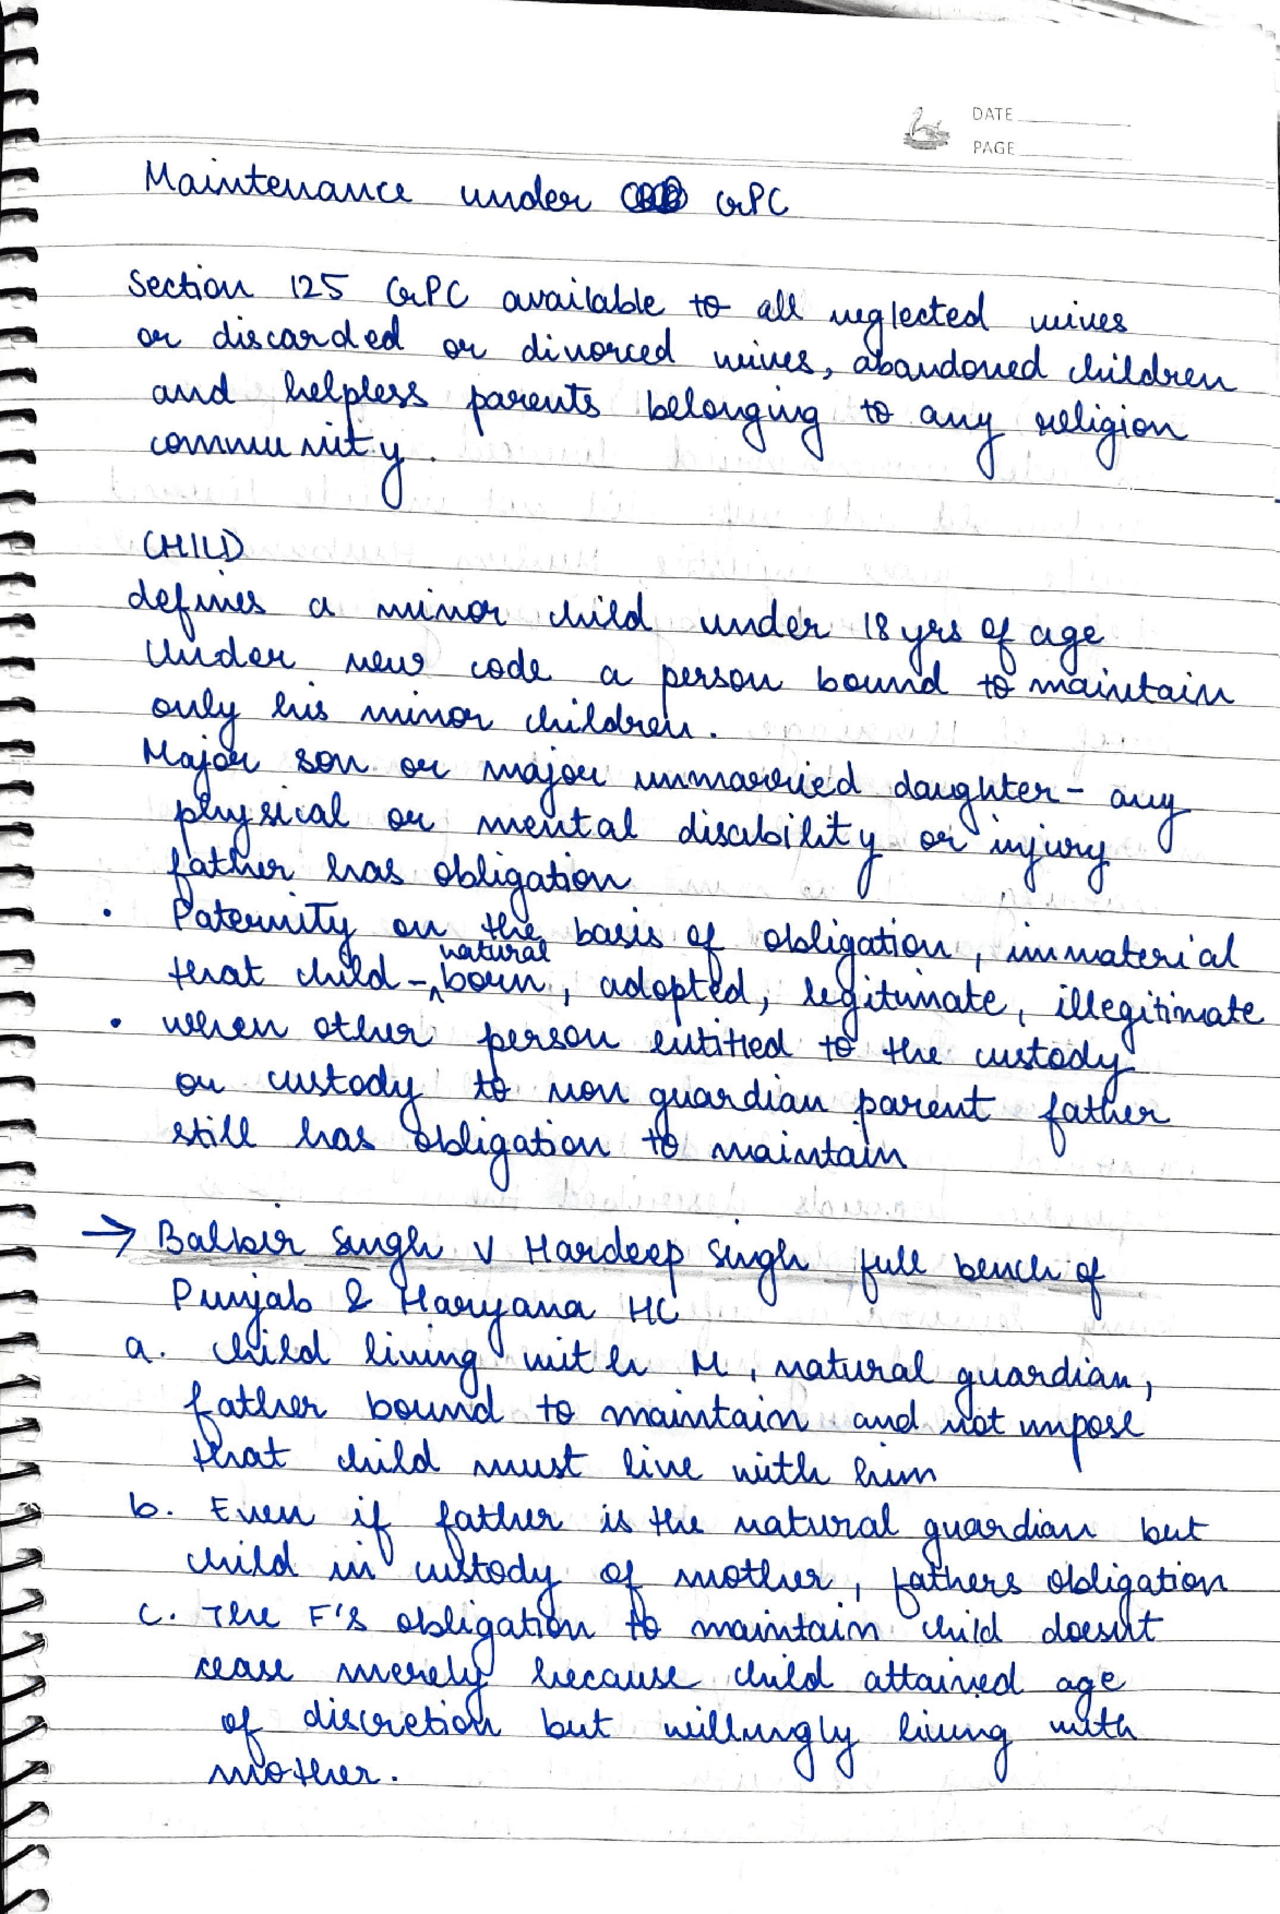 DATE
PAGE
Maintenance under CrPC
Section 125 CrPC available to all neglected wives
or discarded or divorced wives, abandoned children
and helpless parents belonging to any religion
community.
CHILD
defines a minor child under 18 yrs of age
Under new code a person bound to maintain
only his minor children.
Major son or major unmarried daughter - any
physical or mental disability or injury
father has obligation
• Paternity on the basis of obligation, immaterial
that child - natural born, adopted, legitimate, illegitimate
• when other person entitled to the custody
or custody to non guardian parent father
still has obligation to maintain
→ Balbir Singh v Hardeep Singh full bench of
Punjab & Haryana HC
a. child living with M, natural guardian,
father bound to maintain and not impose
that child must live with him
b. Even if father is the natural guardian but
child in custody of mother, fathers obligation
c. The F's obligation to maintain child doesnt
cease merely because child attained age
of discretion but willingly living with
mother.